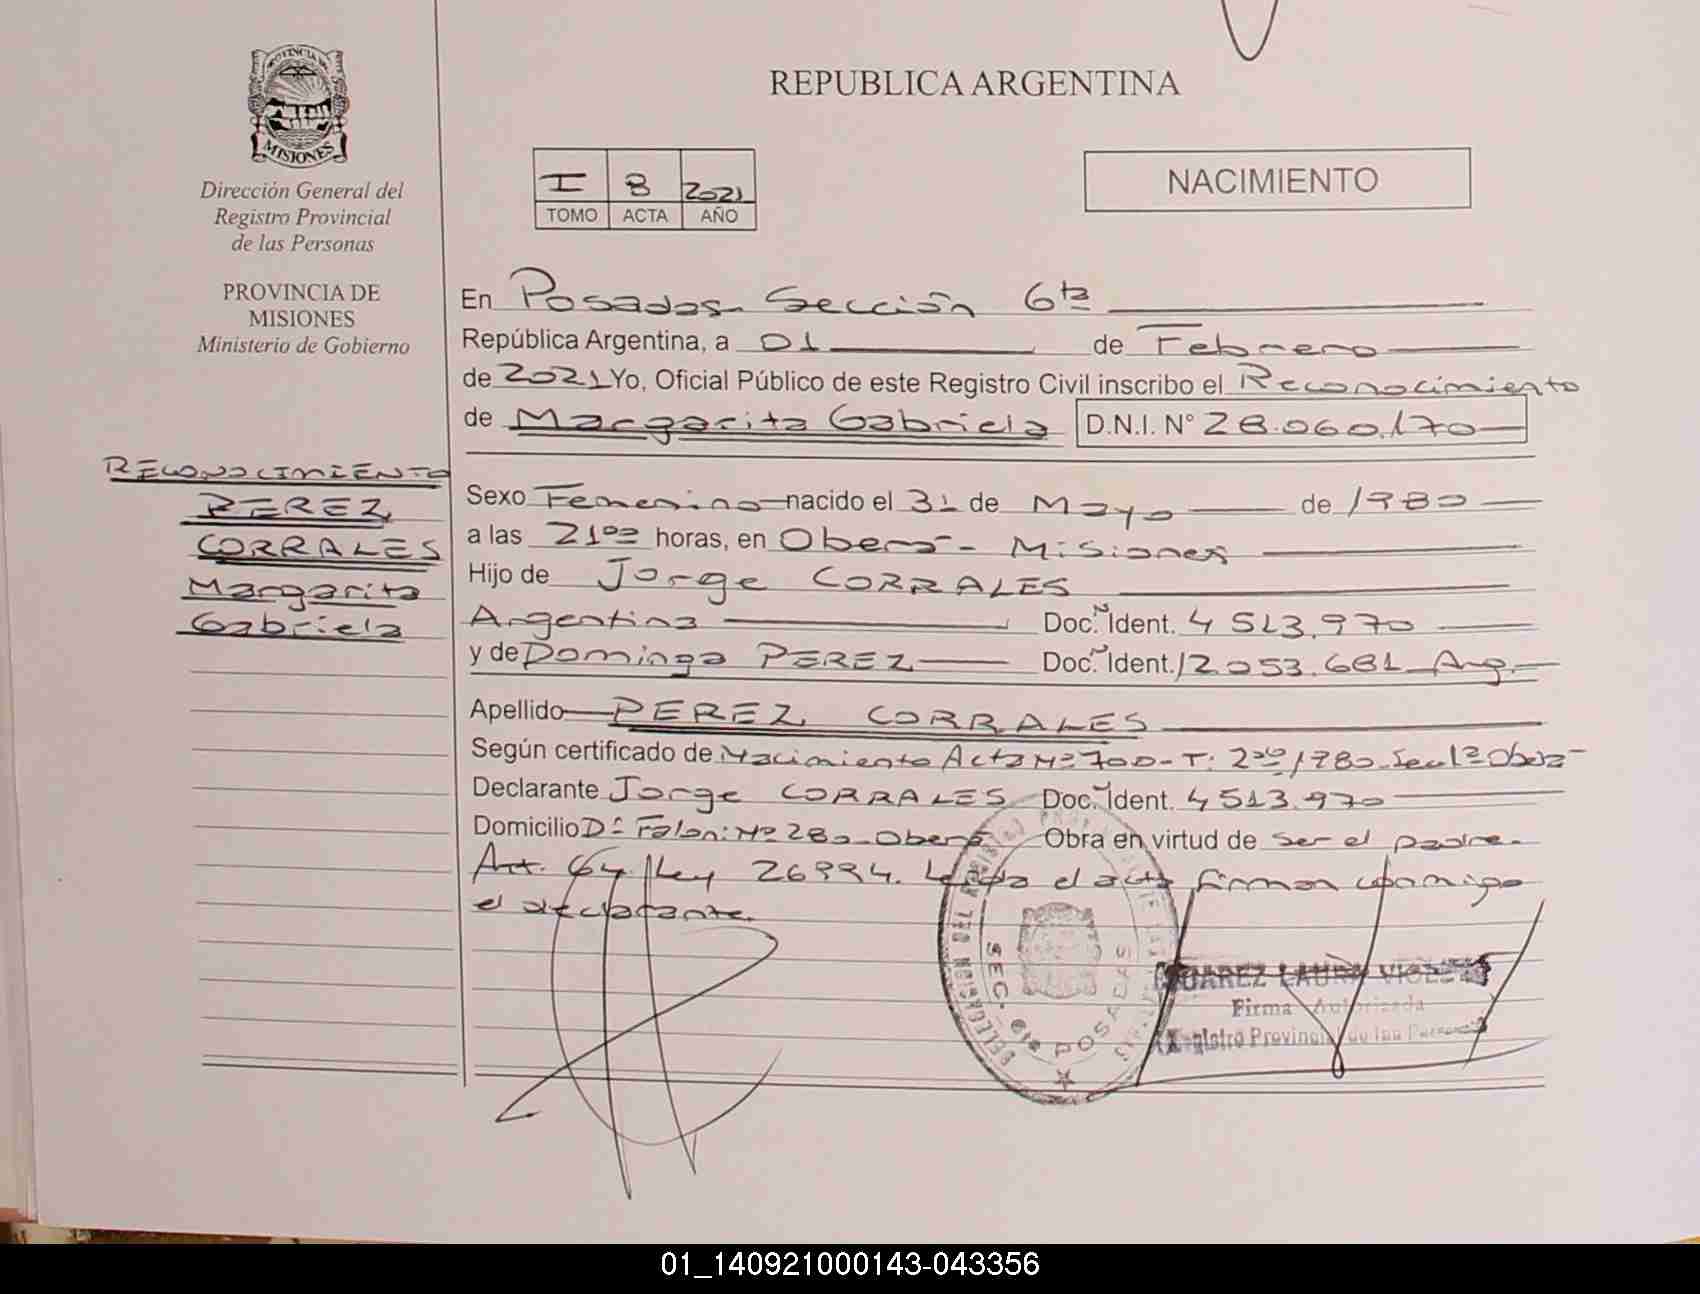 PROVINCIA DE
MISIONES
Dirección General del
Registro Provincial
de las Personas
PROVINCIA DE
MISIONES
Ministerio de Gobierno
RECONOCIMIENTO
PEREZ
CORRALES
Margarita
Gabriela
REPUBLICA ARGENTINA
I 8 2021
TOMO ACTA AÑO
NACIMIENTO
En Posadas Sección 6ta
República Argentina, a 01 de Febrero
de 2021 Yo, Oficial Público de este Registro Civil inscribo el Reconocimiento
de Margarita Gabriela D.N.I. N° 28.060.170
Sexo Femenino nacido el 31 de Mayo de 1980
a las 21 horas, en Obera - Misiones
Hijo de Jorge CORRALES
Argentina Doc. Ident. 4513.970
y de Dominga PEREZ Doc. Ident. 12.053.681 Arg.
Apellido PEREZ CORRALES
Según certificado de Nacimiento Acta Nº 700 - T: 2do/1980 Sec 1ª Oberá
Declarante Jorge CORRALES Doc. Ident. 4513.970
Domicilio Nº 280 Oberá Obra en virtud de ser el padre.
Art. 64 Ley 26994. Leida el acta firman conmigo
el declarante.
DELEGACION DEL REGISTRO
SEC. 6ta POSADAS
SUAREZ LAURA
Firma Autorizada
Registro Provincial de las Personas
01_140921000143-043356